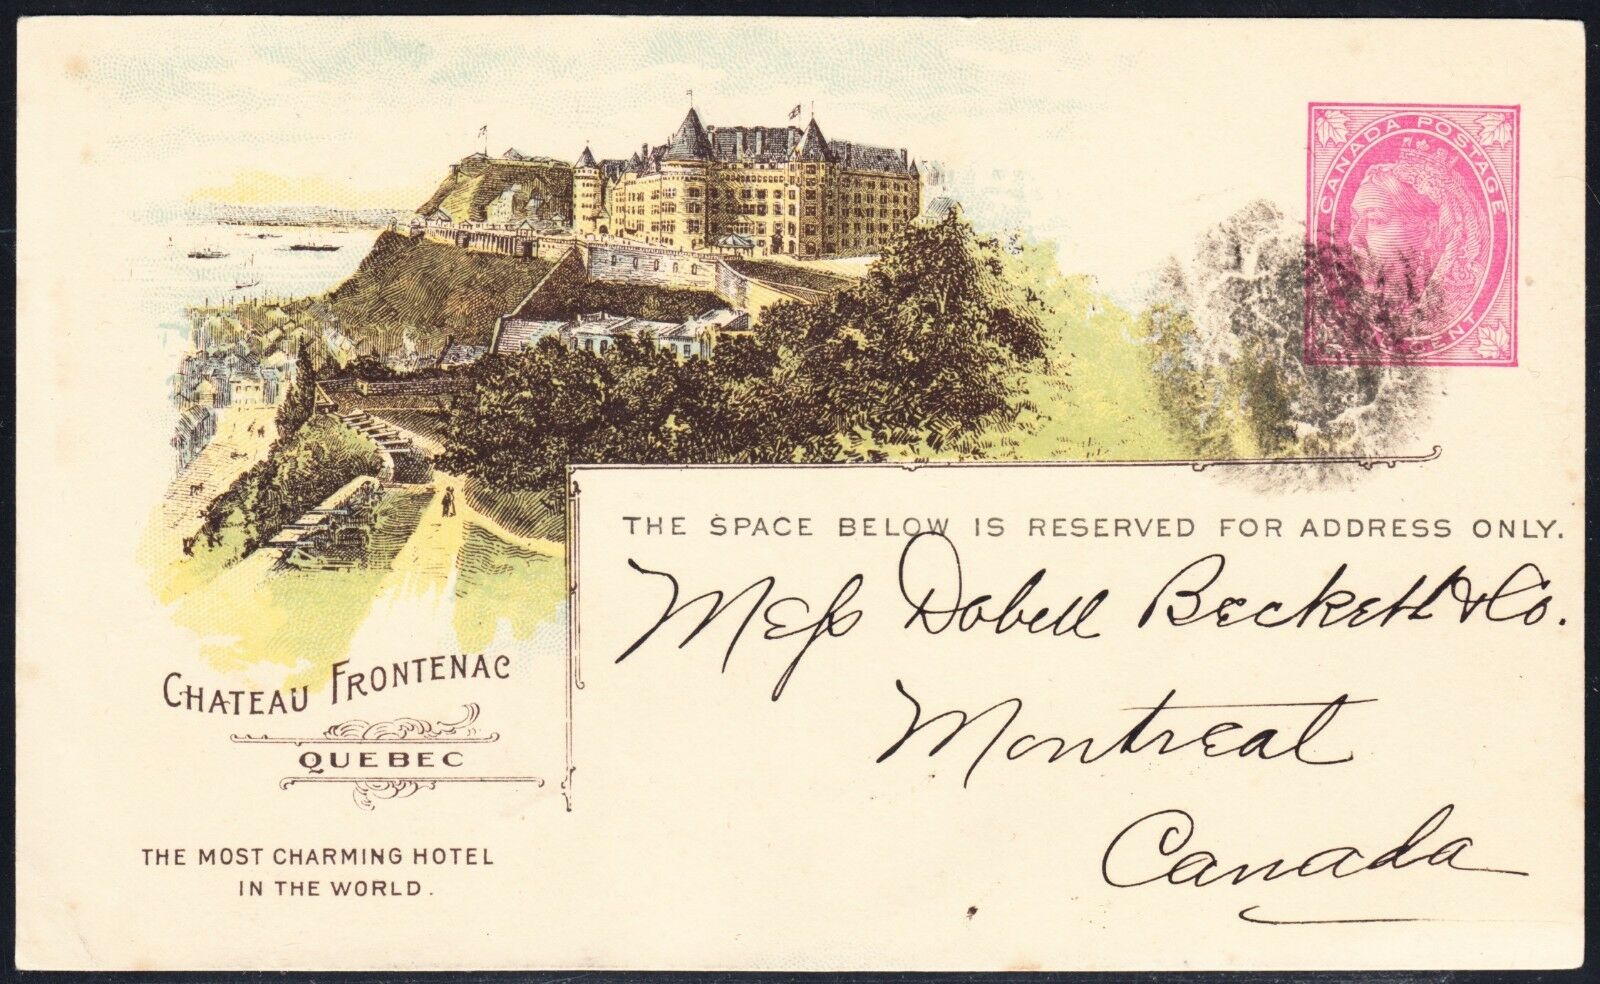 CANADA POSTAGE
CENT
THE SPACE BELOW IS RESERVED FOR ADDRESS ONLY.
Mess Dobell Beckett & Co.
Montreal
Canada
CHATEAU FRONTENAC
QUEBEC
THE MOST CHARMING HOTEL
IN THE WORLD.